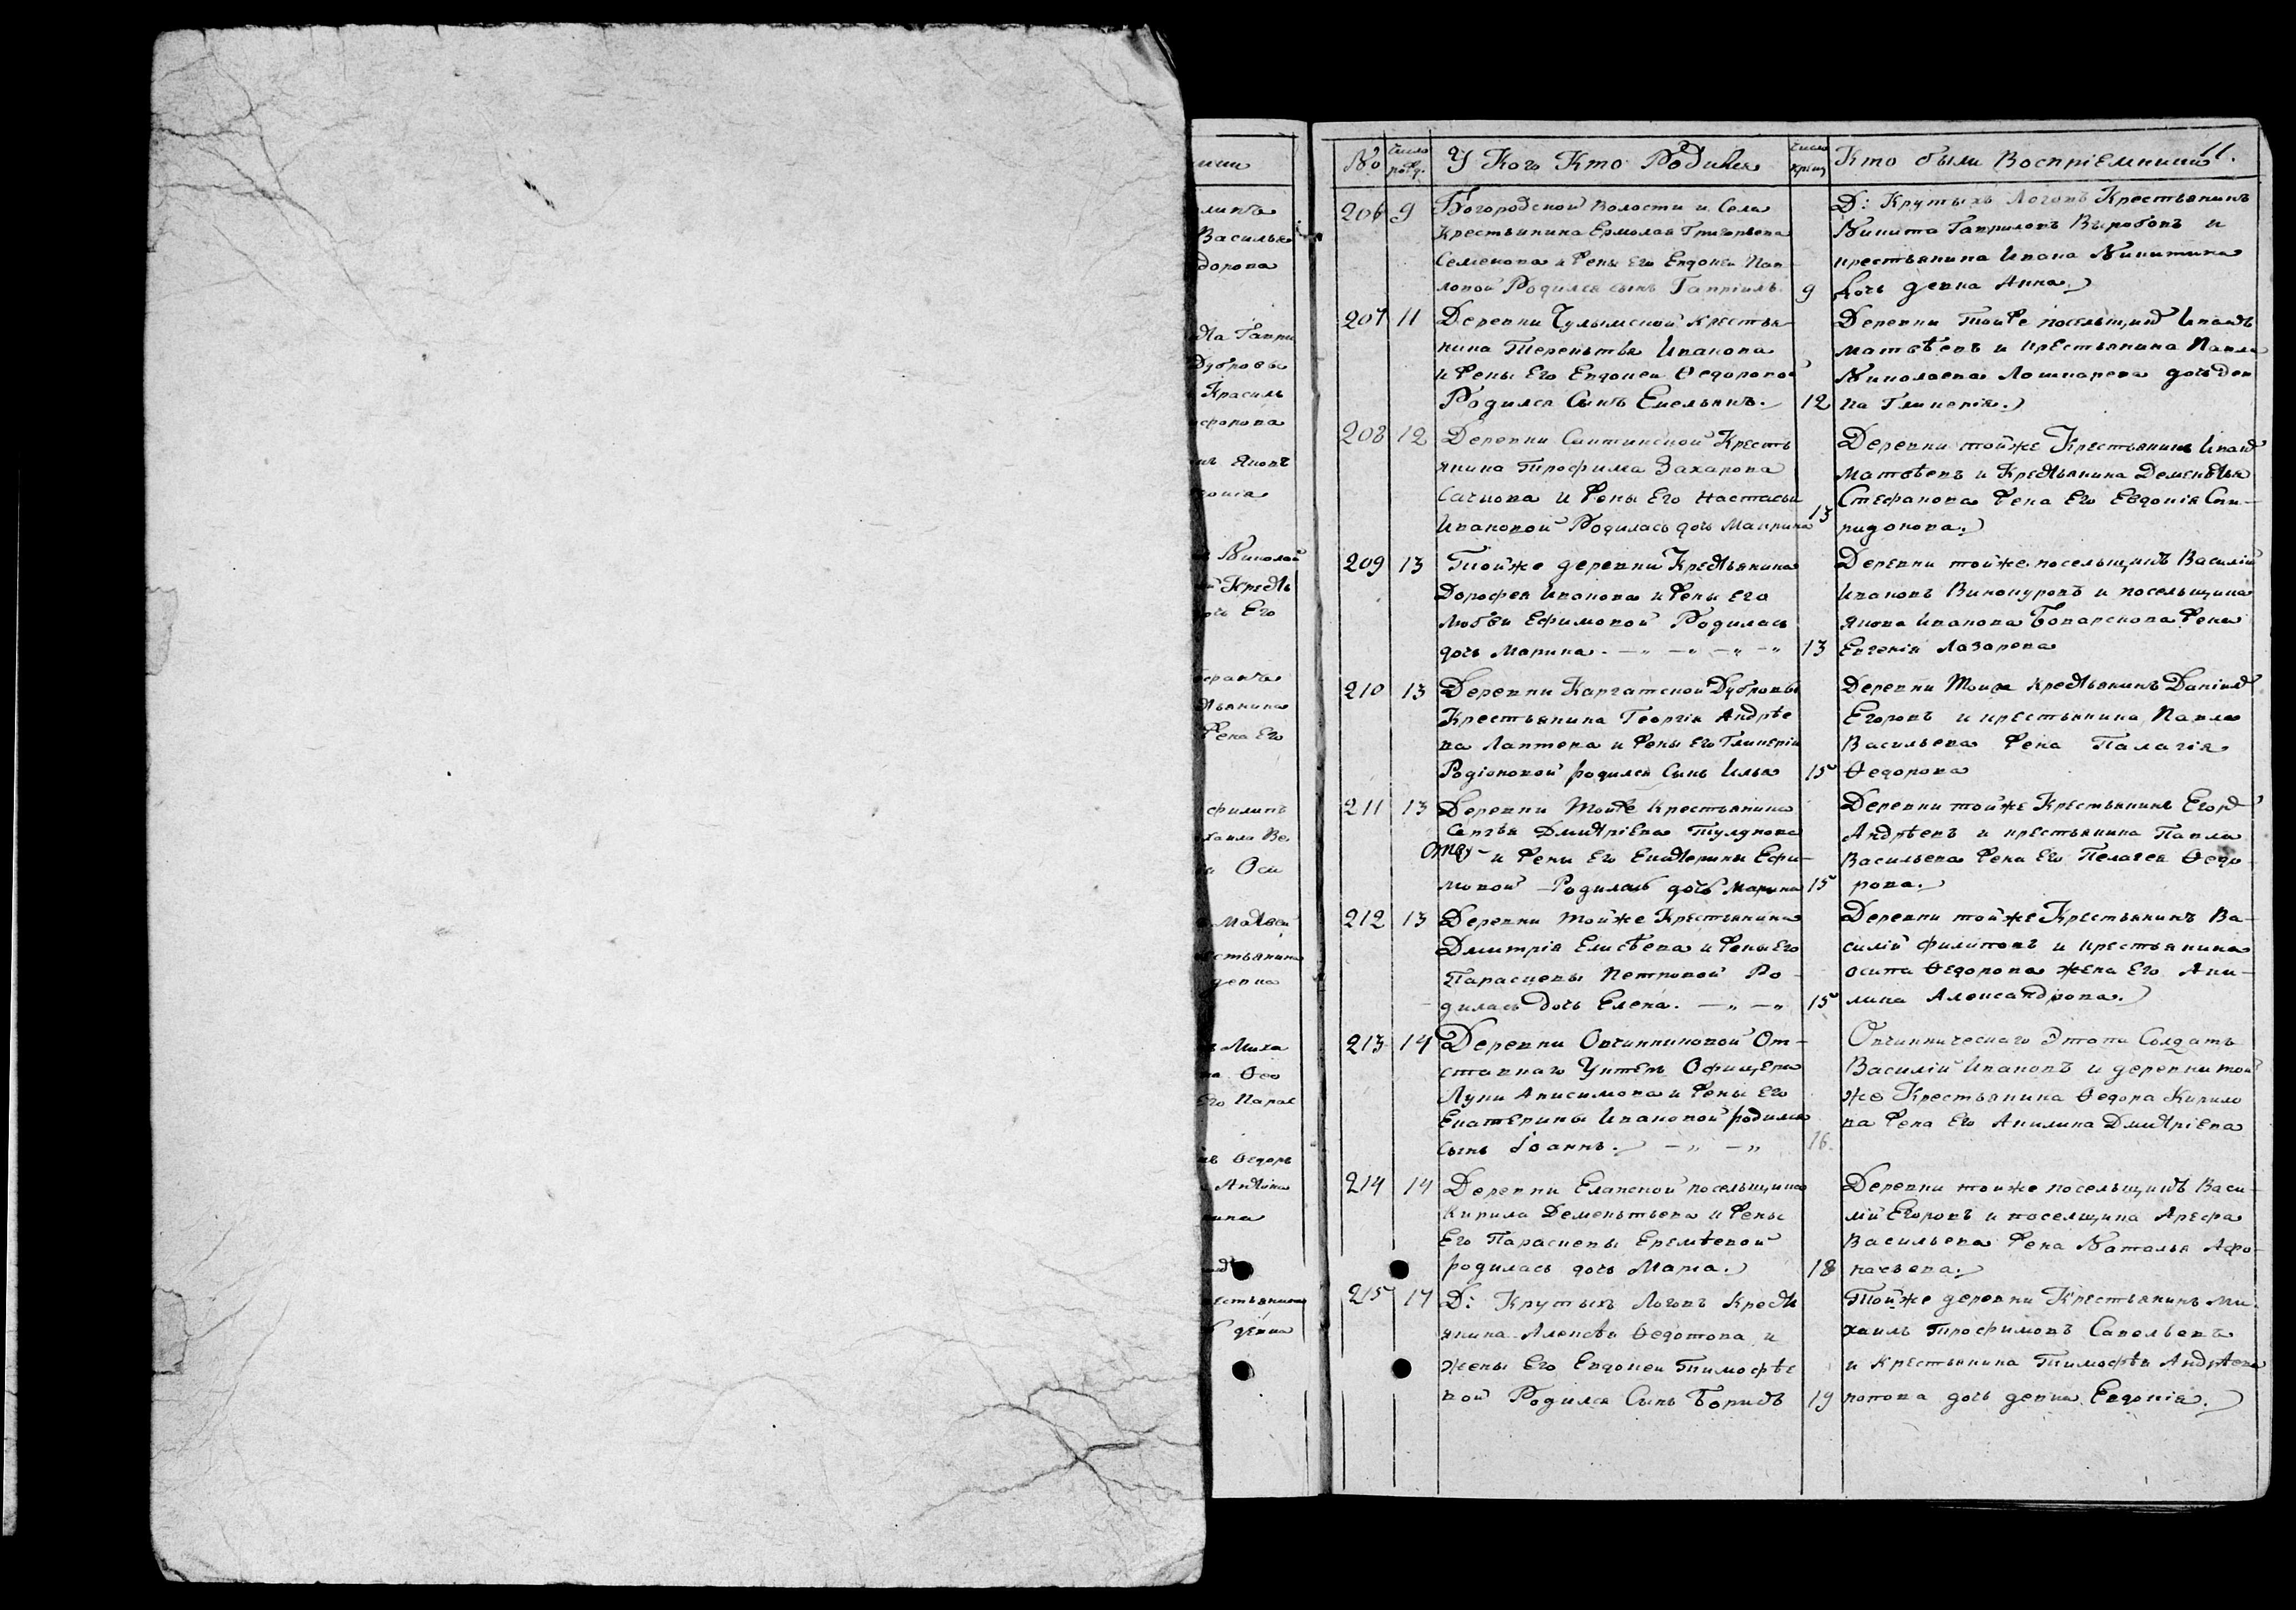 № число рожд. У Кого Кто Родился число крещ Кто были Воспріемники 11.
206 9 Богородской волости и Села
Крестьянина Ермолая Григорьева
Семенова и жены Его Евдокеи Пав
ловой Родился сынъ Гавріилъ. 9
Д: Крутыхъ Логовъ Крестьянинъ
Никита Гавриловъ Выробовъ и
крестьянина Ивана Никитина
дочь девка Анна.
207 11 Деревни Чулымской крестья
нина Терентья Иванова
и жены Его Евдокеи Ѳедоровой
Родился Сынъ Емельянъ. 12
Деревни тойже посельщикъ Иванъ
матвѣевъ и крестьянина Павла
Николаева Лошкарева дочь дев
ка Гликерія.
208 12 Деревни Сиктинской Кресть
янина Трофима Захарова
Сачкова и жены Его Настасьи
Ивановой Родилась дочь Маврина 13
Деревни тойже Крестьянинъ Иванъ
матвѣевъ и Крестьянина Дементья
Стефанова жена Его Евдокія Спи-
ридонова.
209 13 Тойже деревни Крестьянина
Дорофея Иванова и жены Его
Любви Ефимовой Родилась
дочь Марина. — „ — „ — „ — „ 13
Деревни тойже посельщикъ Василій
Ивановъ Винокуровъ и посельщика
Якова Иванова Боварскова жена
Евгенія Лазарева
210 13 Деревни Каргатской Дубровы
Крестьянина Георгія Андрѣе
ва Лаптева и жены Его Гликеріи
Родіоновой родился Сынъ Илья 15
Деревни Тойже крестьянинъ Даніилъ
Егоровъ и крестьянина Павла
Васильева жена Палагія
Ѳедорова
211 13 Деревни Тойже крестьянина
Сергѣя Дмитріева Тулупова
и жены Его Екатерины Ефи-
мовой Родилась дочь Марина 15
Деревни тойже Крестьянинъ Егоръ
Андрѣевъ и крестьянина Павла
Васильева жена Его Пелагея Ѳедо-
рова.
212 13 Деревни Тойже Крестьянина
Дмитрія Елисѣева и жены Его
Парасцевы Петровой Ро-
дилась дочь Елена. — „ — „ 15
Деревни тойже Крестьянинъ Ва-
силій филиповъ и крестьянина
осипа Ѳедорова жена Его Аки-
лина Александрова.
213 14 Деревни Овчинниковой От-
ставнаго Унтеръ Офицера
Луки Анисимова и жены Его
Екатерины Ивановой родился
сынъ Іоаннъ. — „ — „ 16.
Овчинническаго Этапа Солдатъ
Василій Ивановъ и деревни той
же Крестьянина Ѳедора Кирило
ва жена Его Акилина Дмитріева
214 14 Деревни Еланской посельщика
Кирила Дементьева и жены
Его Параскевы Еремѣевой
родилась дочь Марía. 18
Деревни тойже посельщикъ Васи-
лій Егоровъ и поселщика Арефа
Васильева жена Наталья Афо-
насьева.
215 17 Д: Крутыхъ Логовъ Крест
янина Алексѣя Ѳедотова и
жены Его Евдокеи Тимофѣе
вой Родился Сынъ Борисъ 19
Тойже деревни Крестьянинъ Ми-
хаилъ Трофимовъ Савельевъ
и Крестьянина Тимофѣя Андрѣева
котова дочь девка Евдокія.